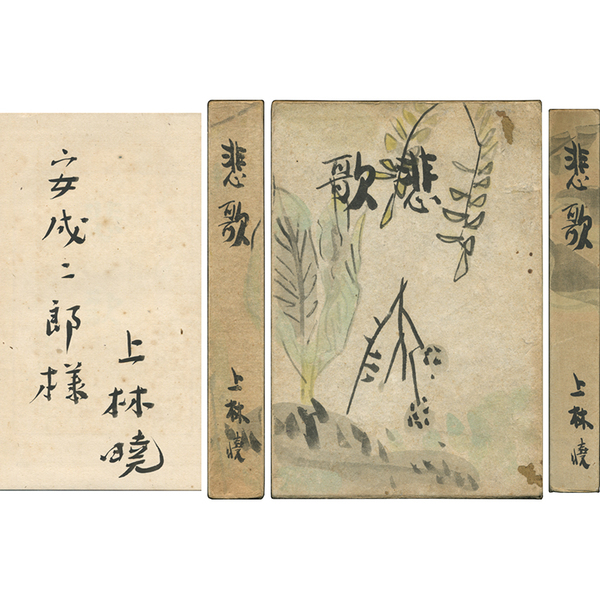 安成二郎様
上林暁
悲歌
上林曉
悲歌
悲歌
上林曉